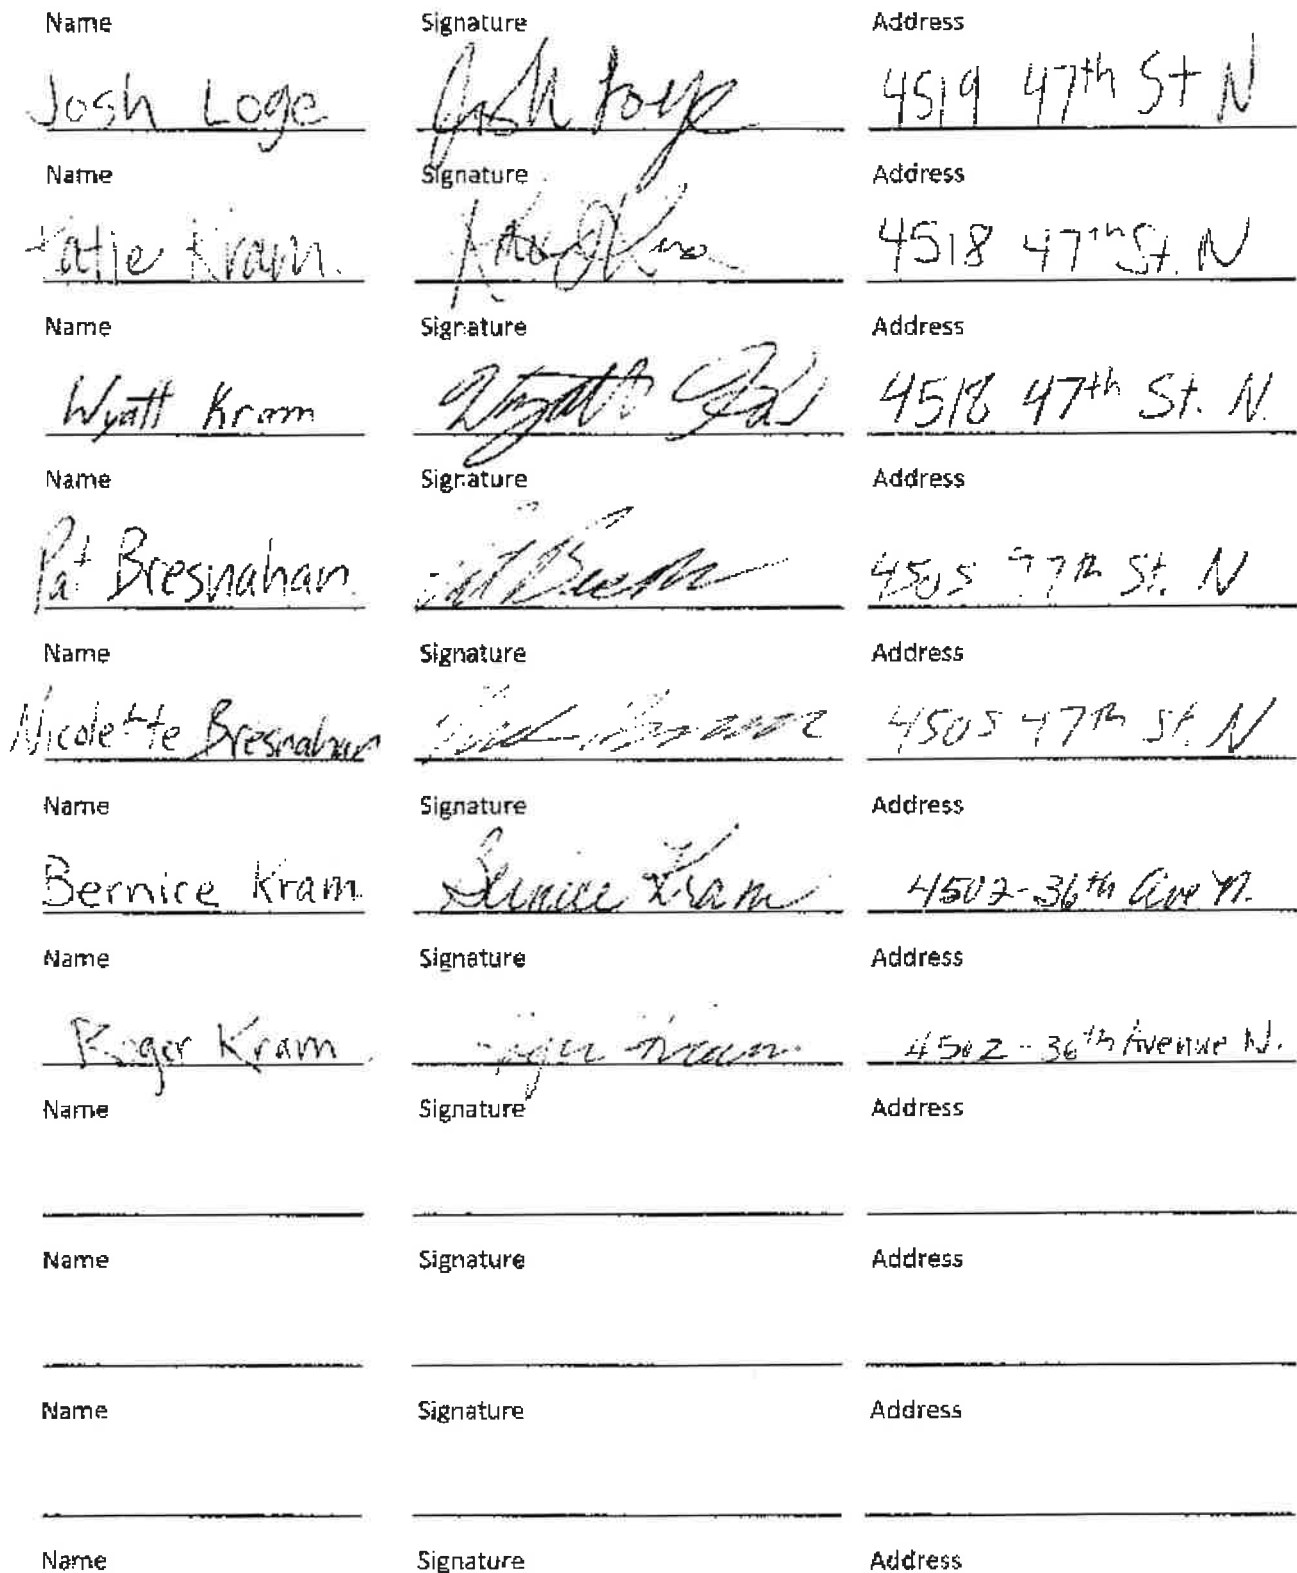 Name Signature Address
Josh Loge Josh Loge 4519 47th St N
Name Signature Address
Katie Kram 4518 47th St. N
Name Signature Address
Wyatt Kram Wyatt 4518 47th St. N.
Name Signature Address
Pat Bresnahan Pat 4505 47th St. N
Name Signature Address
Nicolette Bresnahan 4505 47th St. N
Name Signature Address
Bernice Kram Bernice Kram 4502-36th Ave N.
Name Signature Address
Roger Kram Roger Kram 4502-36th Avenue N.
Name Signature Address
Name Signature Address
Name Signature Address
Name Signature Address